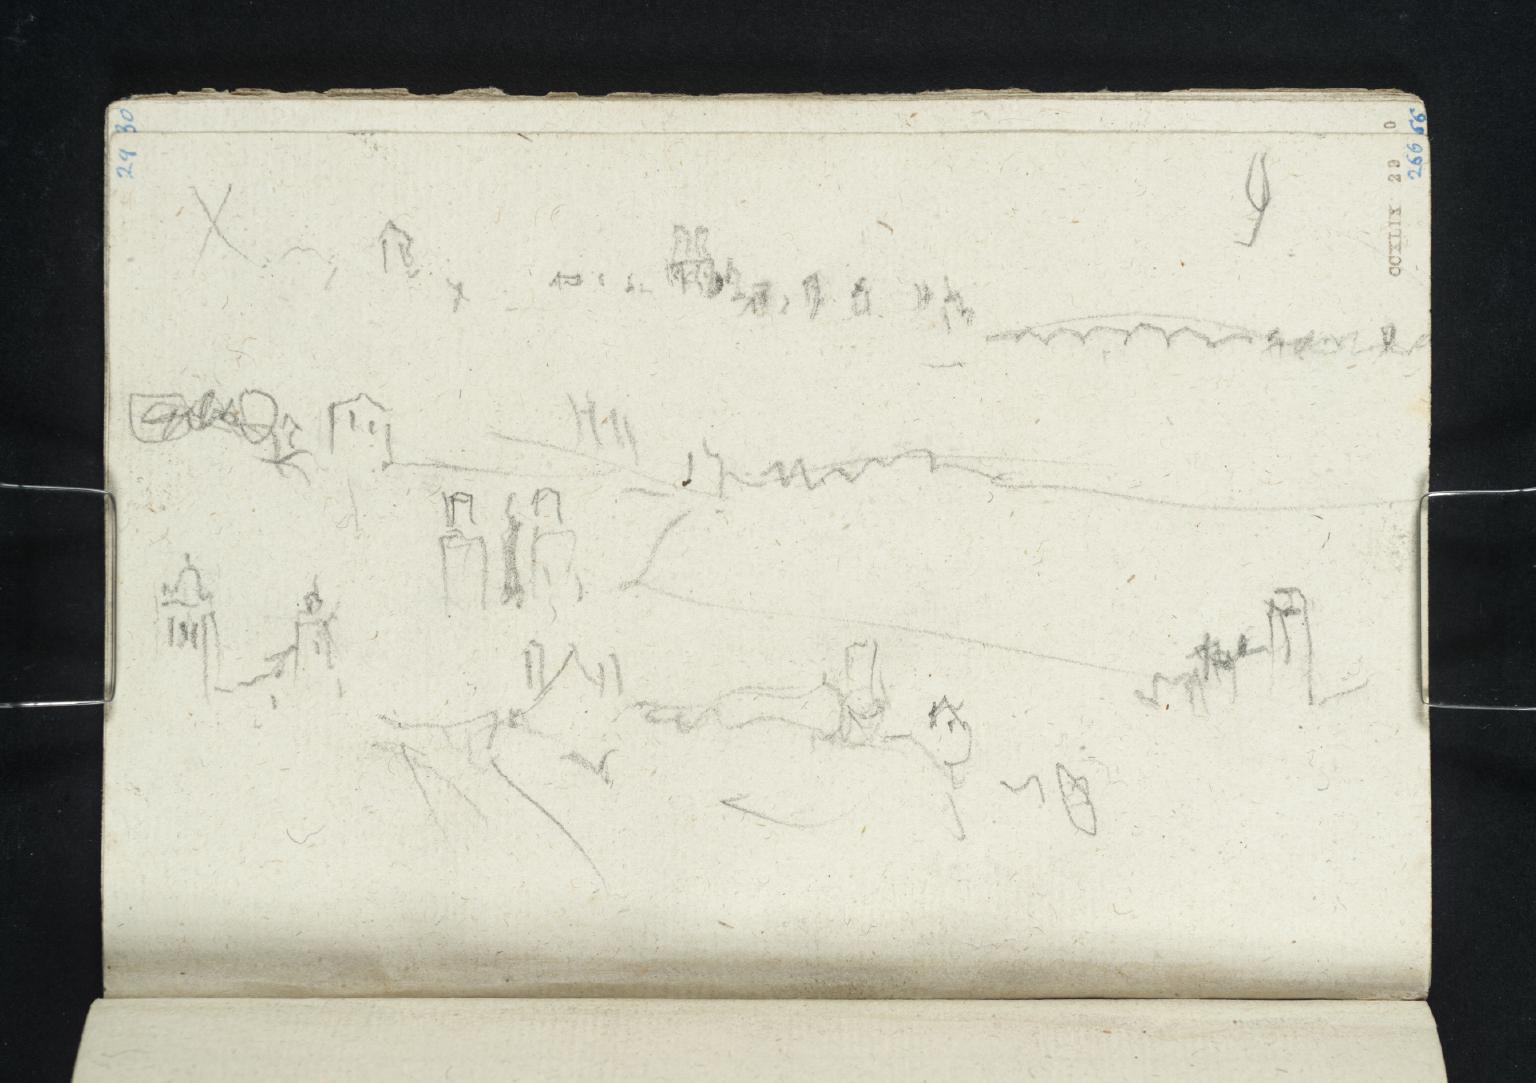 29 30
CCXLIX 29 0
266 66